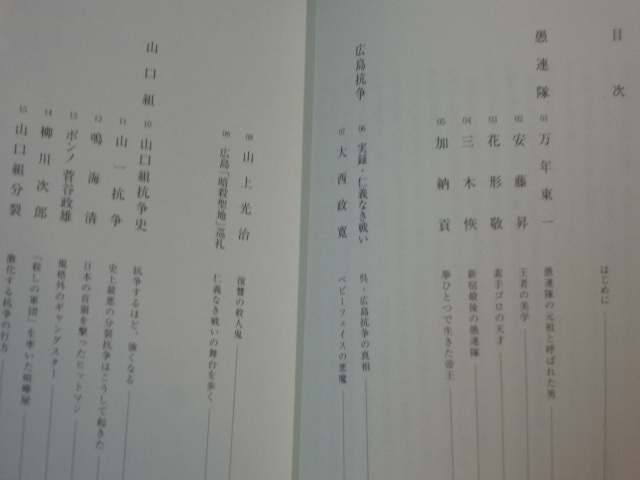 目次
はじめに
愚連隊
01 万年東一 愚連隊の元祖と呼ばれた男
02 安藤昇 王者の美学
03 花形敬 素手ゴロの天才
04 三木恢 新宿最後の愚連隊
05 加納貢 拳ひとつで生きた帝王
広島抗争
06 実録・仁義なき戦い 呉・広島抗争の真相
07 大西政寛 ベビーフェイスの悪魔
08 山上光治 復讐の殺人鬼
09 広島「暗殺聖地」巡礼 仁義なき戦いの舞台を歩く
山口組
10 山口組抗争史 抗争するほど、強くなる
11 山一抗争 史上最悪の分裂抗争はこうして起きた
12 鳴海清 日本の首領を撃ったヒットマン
13 ボンノ 菅谷政雄 規格外のギャングスター
14 柳川次郎 「殺しの軍団」を率いた喧嘩屋
15 山口組分裂 激化する抗争の行方